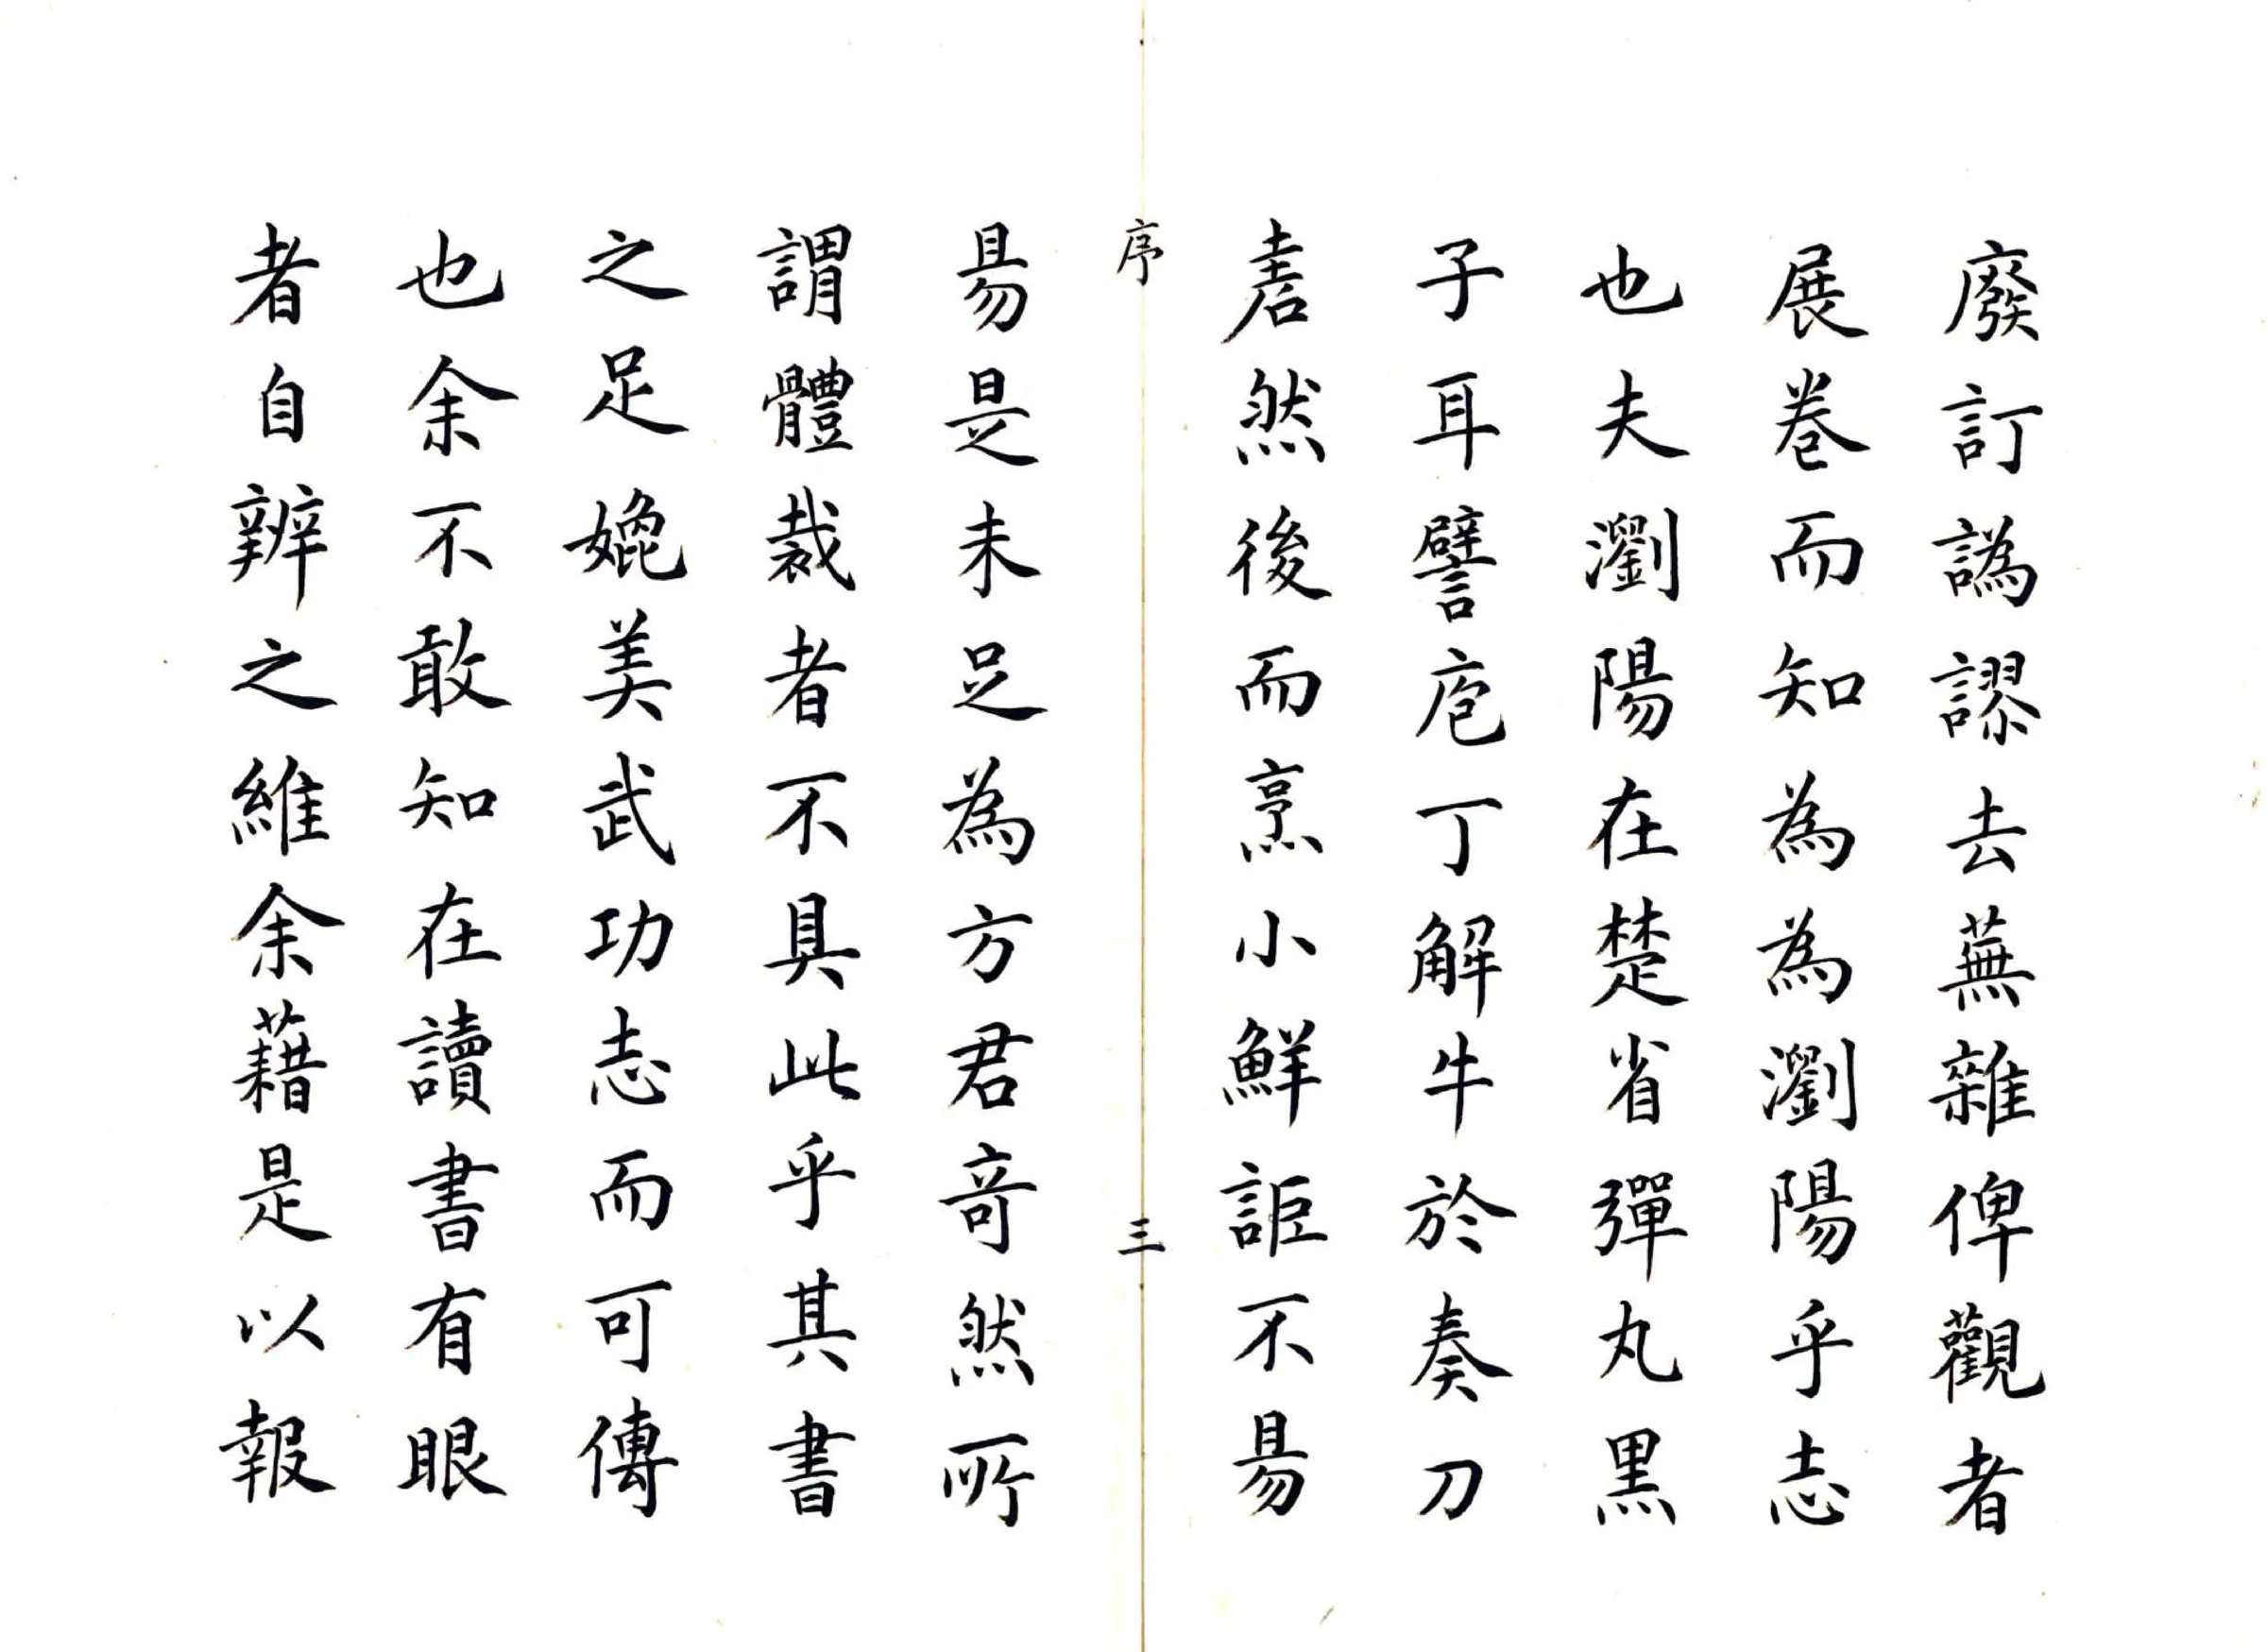 廢訂譌謬去蕪雜俾觀者
展卷而知為為瀏陽乎志
也夫瀏陽在楚省彈丸黑
子耳譬庖丁解牛於奏刀
砉然後而烹小鮮詎不易
序 三
易是未足為方君竒然所
謂體裁者不具此乎其書
之足媲美武功志而可傳
也余不敢知在讀書有眼
者自辨之維余藉是以報